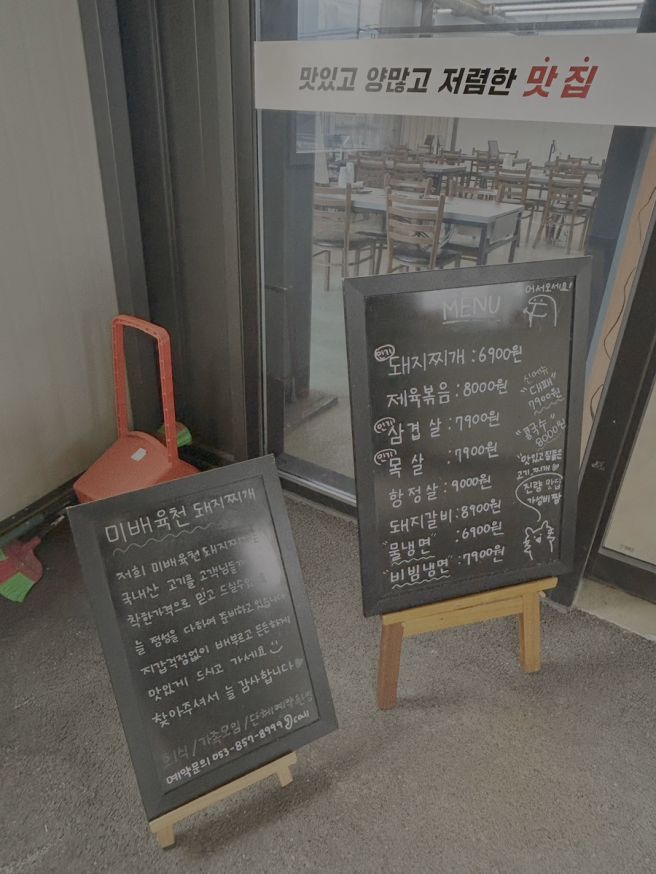 맛있고 양많고 저렴한 맛집
어서오세요!
MENU
인기 돼지찌개 : 6900원
제육볶음 : 8000원
인기 삼겹살 : 7900원
인기 목살 : 7900원
항정살 : 9000원
돼지갈비 : 8900원
"물냉면" : 6900원
"비빔냉면" : 7900원
신메뉴
"대패"
7900원
"콩국수"
8000원
"맛있고질좋은
고기, 찌개
진량 맛집
가성비짱
미배육천 돼지찌개
저희 미배육천 돼지찌개는
국내산 고기를 고객님들께
착한가격으로 믿고 드실수있도록
늘 정성을 다하여 준비하고 있습니다
지갑걱정없이 배부르고 든든하게
맛있게 드시고 가세요
찾아주셔서 늘 감사합니다
회식 / 가족모임 / 단체예약환영
예약문의 053-857-8999 call